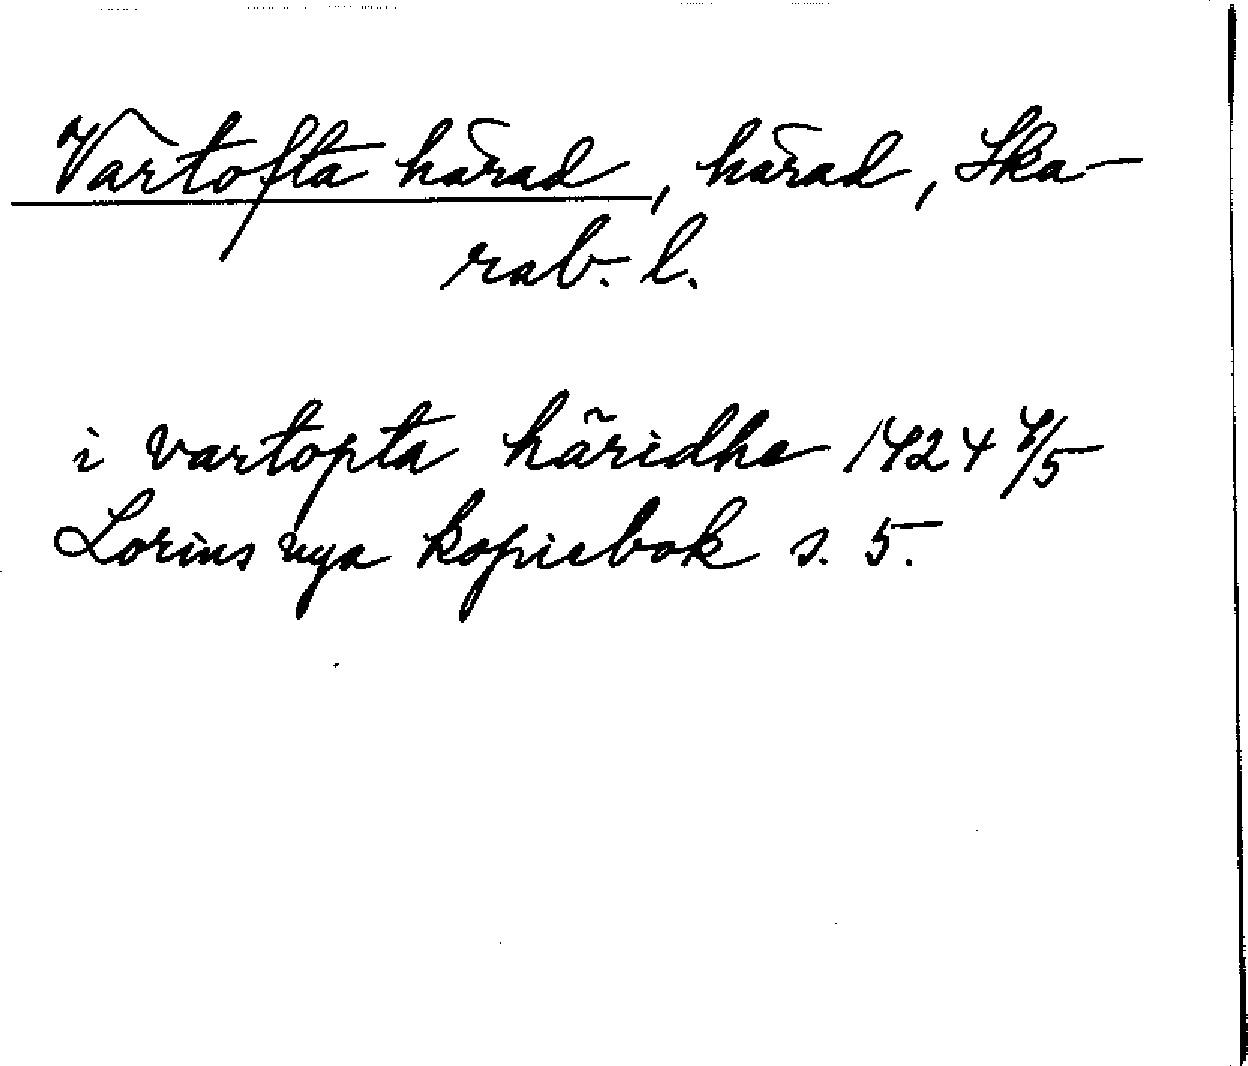 Vartofta härad, härad, Ska-
rab. l.
i vartopta häridhe 1424 4/5
Lorins nya kopiebok s. 5.